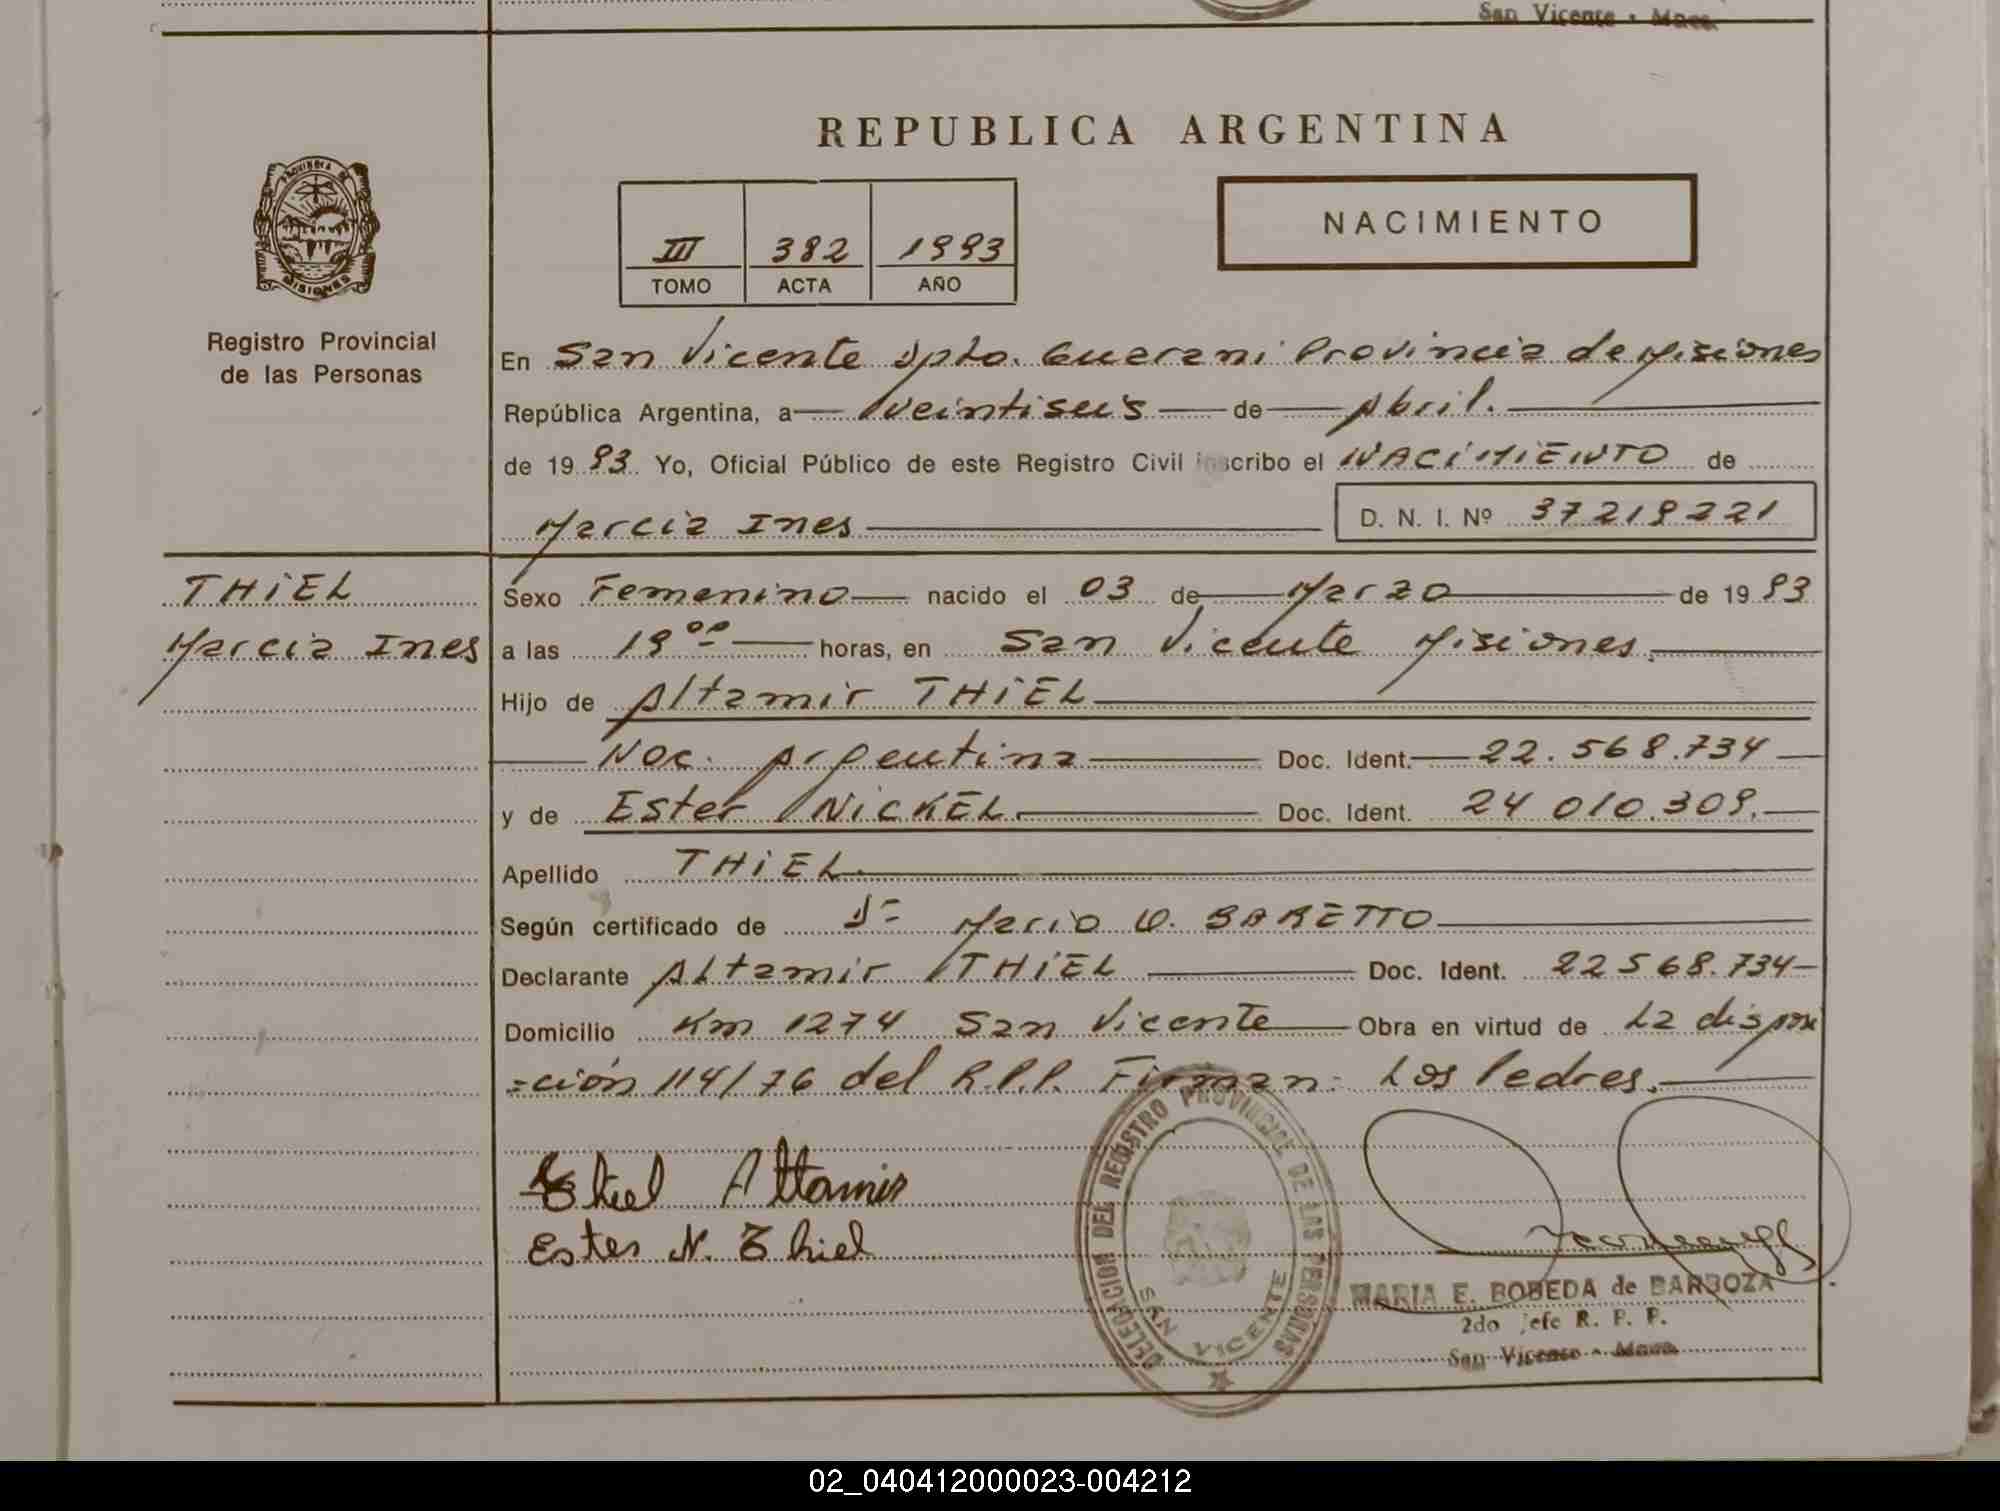 San Vicente - Mnes.
PROVINCIA DE
MISIONES
Registro Provincial
de las Personas
REPUBLICA ARGENTINA
III 382 1993
TOMO ACTA AÑO
NACIMIENTO
En San Vicente Dpto. Guarani Provincia de Misiones
República Argentina, a veintiseis de Abril.
de 19 93 Yo, Oficial Público de este Registro Civil inscribo el NACIMIENTO de
Marcia Ines D. N. I. Nº 37219221
THIEL
Marcia Ines
Sexo Femenino nacido el 03 de Marzo de 19 93
a las 19 00 horas, en San Vicente Misiones.
Hijo de Altamir THIEL
Nac. Argentina Doc. Ident. 22.568.734
y de Ester NICKEL Doc. Ident. 24 010.309.
Apellido THIEL
Según certificado de Dr Mario W. BARETTO
Declarante ALtamir THIEL Doc. Ident. 22568.734
Domicilio Km 1274 San Vicente Obra en virtud de La disposi
=ción 114/76 del R.P.P. Firman: Los Padres.
Thiel Altamir
Ester N. Thiel
DELEGACION DEL REGISTRO PROVINCIAL DE LAS PERSONAS
SAN VICENTE
MARIA E. BOBEDA de BARBOZA
2do Jefe R. P. P.
San Vicente - Mnes.
02_040412000023-004212